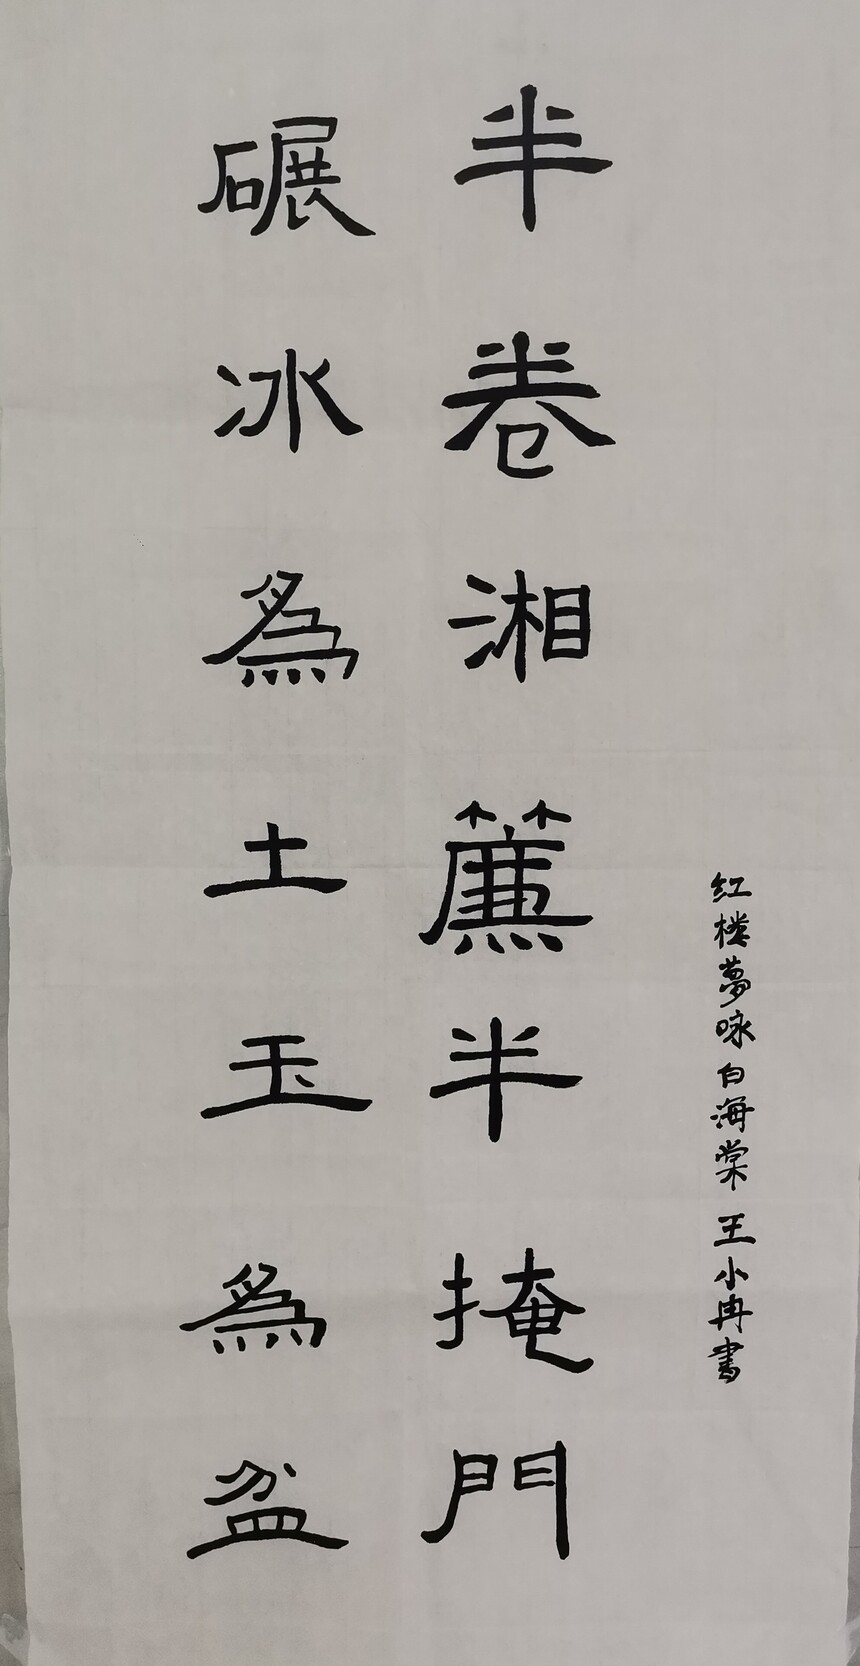 半卷湘簾半掩門
碾冰爲土玉爲盆
红楼夢咏白海棠 王小冉書